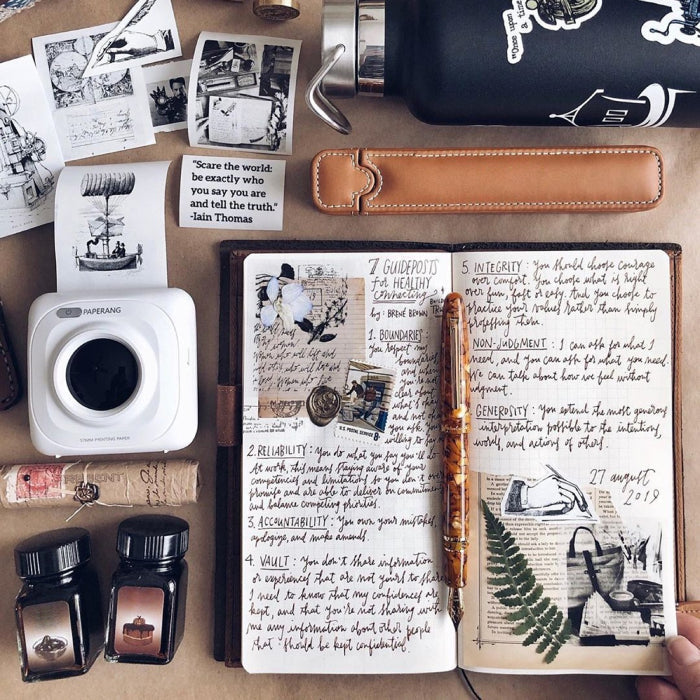 "Once upon
a time
"Scare the world:
be exactly who
you say you are
and tell the truth."
-Iain Thomas
PAPERANG
57MM PRINTING PAPER
7 GUIDEPOSTS
for HEALTHY
Connecting
by: BRENÉ BROWN
1. BOUNDARIES:
You respect my
boundaries
and when
you're not
clear about
what's
and not
you ask. You
willing to say
U.S. POSTAGE
8¢
2. RELIABILITY: You do what you say you'll do.
At work, this means staying aware of your
competencies and limitations so you don't over
promise and are able to deliver on commitments
and balance competing priorities.
3. ACCOUNTABILITY: You own your mistakes,
apologize, and make amends.
4. VAULT: You don't share information
or experiences that are not yours to share
I need to know that my confidences are
kept, and that you're not sharing with
me any information about other people
that should be kept confidential.
5. INTEGRITY: You should choose courage
over comfort. You choose what is right
over fun, fast or easy. And you choose to
practice your values rather than simply
professing them.
NON-JUDGMENT: I can ask for what I
need, and you can ask for what you need.
We can talk about how we feel without
judgment.
GENEROSITY: You extend the most generous
interpretation possible to the intentions,
words, and actions of others.
27 august
2019